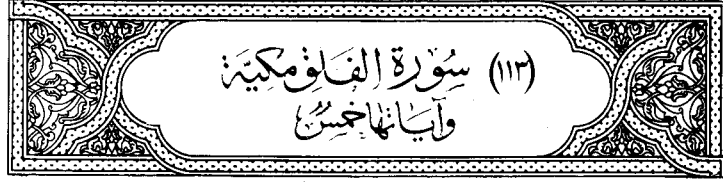 (١١٣) سُورَةِ الفَلَقِ مَكِيَّة
وَآيَاتُهَا خَمْسٌ